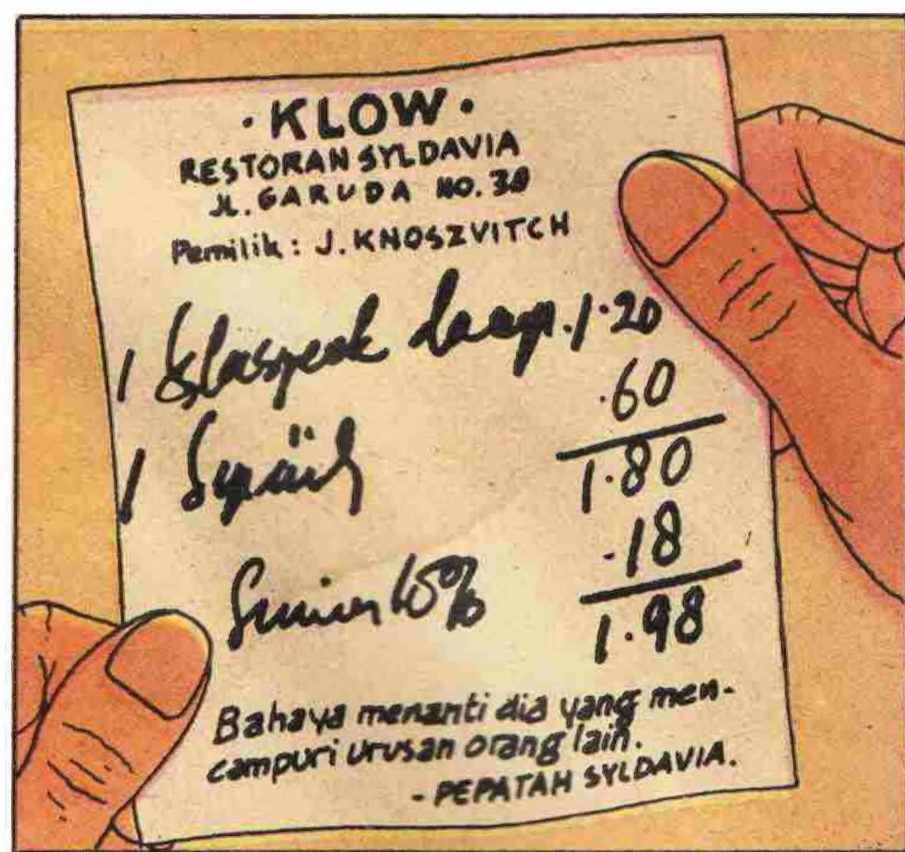 · KLOW ·
RESTORAN SYLDAVIA
JL. GARUDA NO. 38
Pemilik : J. KNOSZVITCH
1 1·20
·60
1 1·80
·18
10% 1·98
Bahaya menanti dia yang men-
campuri urusan orang lain.
- PEPATAH SYLDAVIA.